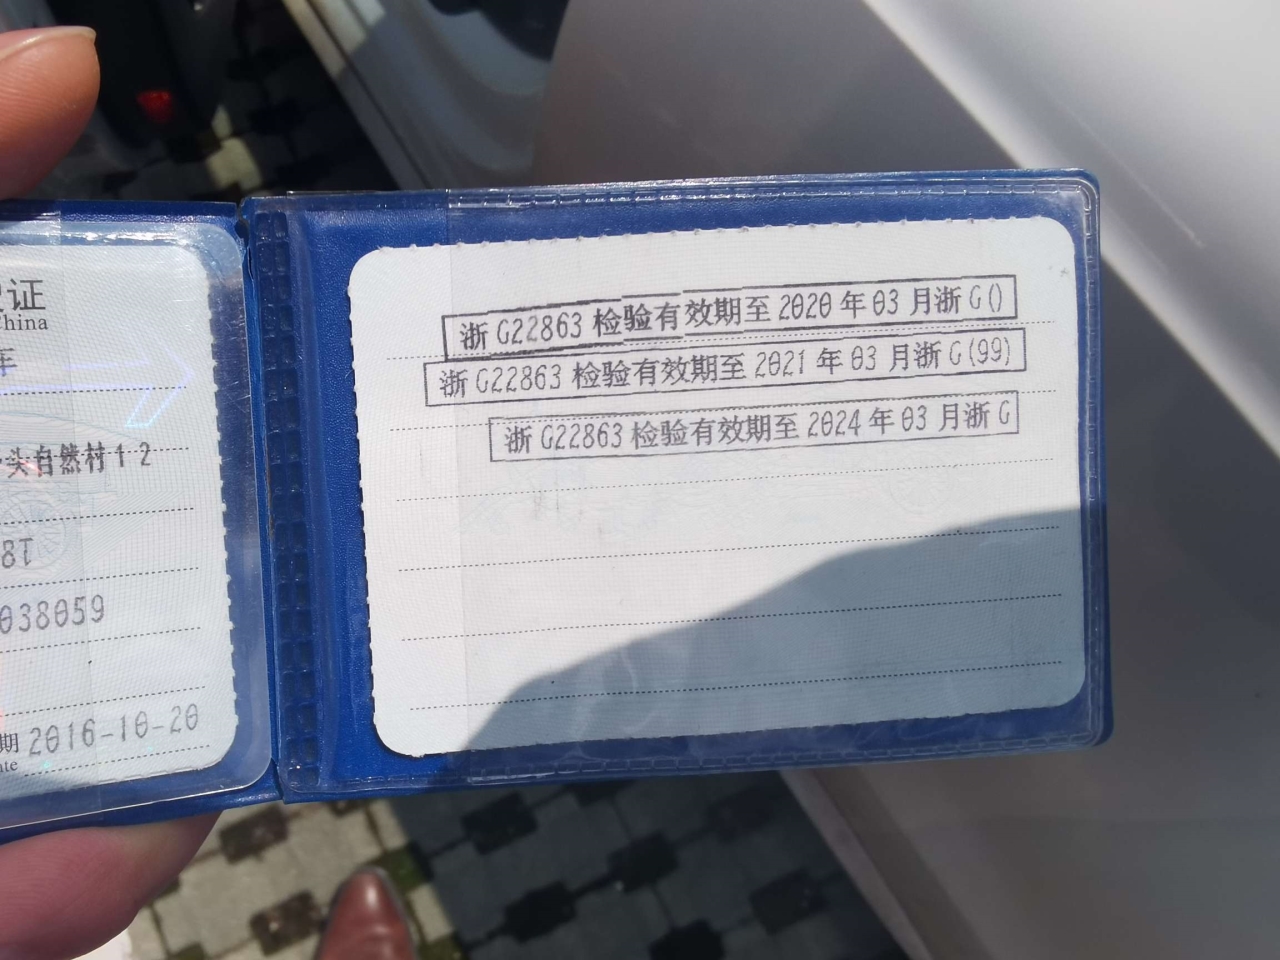 证
China
车
头自然村12
8T
038059
期 2016-10-20
浙 G22863 检验有效期至 2020 年 03 月浙 G()
浙 G22863 检验有效期至 2021 年 03 月浙 G(99)
浙 G22863 检验有效期至 2024 年 03 月浙 G